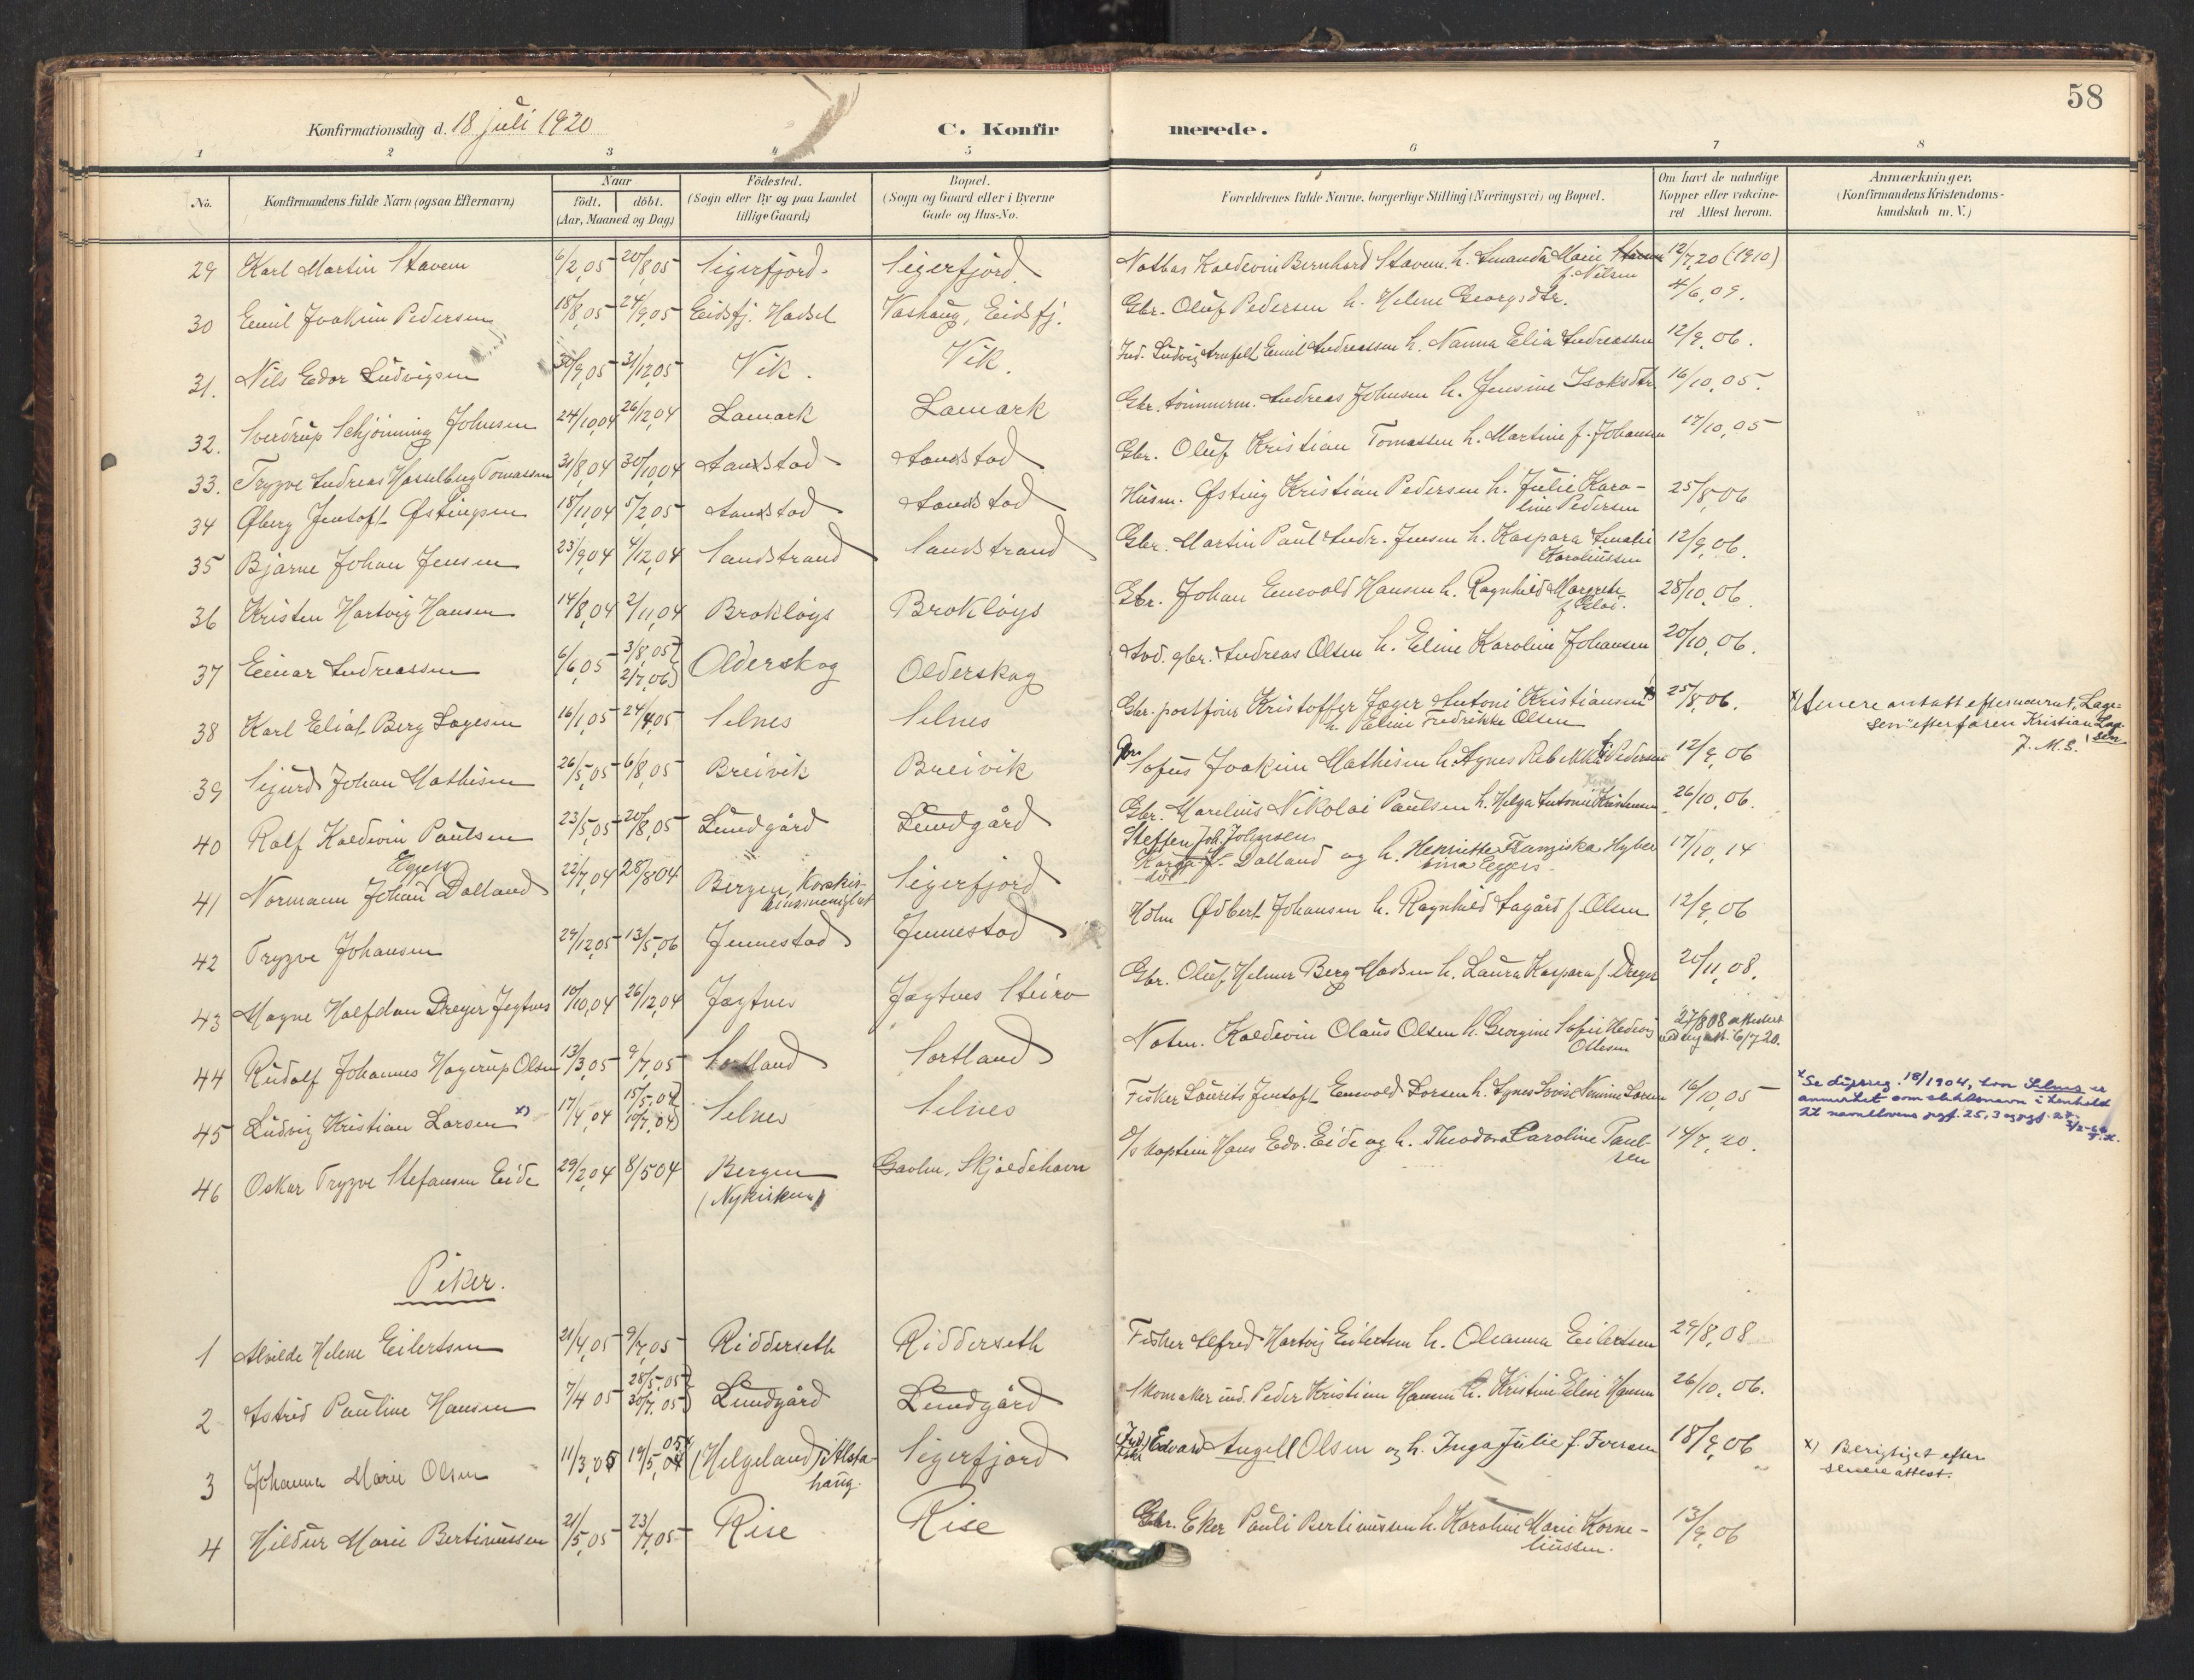 58
Konfirmationsdag d. 18 juli 1920
C. Konfirmerede.
1 2 3 4 5 6 7 8
No.
Konfirmandens fulde Navn (ogsaa Efternavn)
Naar
födt. döbt.
(Aar, Maaned og Dag)
Födested.
(Sogn eller By og paa Landet
tillige Gaard)
Bopæl.
(Sogn og Gaard eller i Byerne
Gade og Hus-No.
Forældrenes fulde Navne, borgerlige Stilling (Næringsvei) og Bopæl.
Om havt de naturlige
Kopper eller vakcine-
ret Attest herom.
Anmærkninger.
(Konfirmandens Kristendoms-
kundskab m. V.)
29 Karl Martin Stavem 6/2,05 20/8,05 Sigerfjord Sigerfjord Notbas Kaldevin Bernhard Stavem h. Amanda Marie 12/7,20 (1910)
f. Nilsen
30 Emil Joakim Pedersen 18/8,05 24/9,05 Eidsfj. Hadsel Vashaug, Eidsfj. Gbr. Oluf Pedersen h. Helene Georgsdtr. 4/6,09.
31. Nils Edor Ludvigsen 30/9,05 31/12,05 Vik. Vik. Ind. Ludvig Emil Andreassen h. Nanna Elia Andreassen 12/9,06.
32. Sverdrup Schjönning Johnsen 24/10,04 26/12,04 Lamark Lamark Gbr. tömmerm. Andreas Johnsen h. Jensine Isaksdtr. 16/10,05.
33. Trygve Andreas Hasselberg Tomassen 31/8,04 30/10,04 Aandstad Aandstad Gbr. Oluf Kristian Tomassen h. Martine f. Johansen 17/10,05
34 Øberg Jentoft Østingsen 18/11,04 5/2,05 Aandstad Aandstad Husm. Østing Kristian Pedersen h. Julie Karo- 25/8,06
line Pedersen
35 Bjarne Johan Jensen 23/9,04 4/12,04 Sandstrand Sandstrand Gbr. Martin Paul Andr. Jensen h. Kaspara Amalie 12/9,06.
Karoliussen
36 Kristen Hartvig Hansen 14/8,04 2/11,04 Brokløys Brokløys Gbr. Johan Enevold Hansen h. Ragnhild Margrete 28/10,06.
37 Einar Andreassen 6/6,05 3/8,05) 2/7,06) Olderskog Olderskog gbr. Andreas Olsen h. Eline Karoline Johansen 20/10,06.
38 Karl Eliat Berg Lagesen 16/1,05 24/4,05 Selnes Selnes Gbr. postfører Kristoffer Jæger Antoni Kristiansen x) 25/8,06.
h. Eline Fredrikke Olsen
x) Senere antatt efternavnet „Lage-
sen" efter faren Kristian Lage-
sen
J. M. S.
39 Sigurd Johan Mathisen 26/5,05 6/8,05 Breivik Breivik Gbr. Sofus Joakim Mathisen h. Agnes Rebekka Pedersen 12/9,06
40 Ralf Kaldevin Paulsen 23/5,05 20/8,05 Lundgård Lundgård Gbr. Marelius Nikolai Paulsen h. Helga Antonie Kristensen 26/10,06.
Eggers
41 Normann Johan Dalland 22/7,04 28/8 04 Bergen, Korskir- Sigerfjord Steffen Joh. Johnsen
Dalland og h. Henriette Franziska Hyber 17/10,14
sina Eggers
42 Trygve Johansen 29/12,05 13/5,06 Jennestad Jennestad Holm Ødbert Johansen h. Ragnhild Aagård f. Olsen 12/9,06
43 Magne Halfdan Dreyer Jegtnes 10/10,04 26/12,04 Jægtnes Jægtnes Steiro Gbr. Oluf Helmer Berg Madsen h. Laura Kaspara f. Dreyer 20/11,08.
44 Rudolf Johannes Hagerup Olsen 13/3,05 9/7,05 Sortland Sortland Notm. Kaldevin Olaus Olsen h. Georgine Sofie Hedevig 27/8 08
Ottesen
45 Ludvig Kristian Larsen x) 17/4,04 15/5,04) 10/7,04) Selnes Selnes Fisker Laurits Jentoft Enevold Larsen h. Agnes Lovise Larsen 16/10,05
x Se dåpsreg. 18/1904, hvor Selnes er
anmerket som slektsnavn i henhold
til navnelovens prgf. 25,3 og prgf. 27.
46 Oskar Trygve Stefansen Eide 29/2,04 8/5 04 Bergen Gavlen, Skjoldehavn D/s kaptein Hans Edv. Eide og h. Theodora Caroline Paul- 14/7,20.
sen
(Nykirken)
Piker.
1 Alvilde Helene Eilertsen 21/4,05 9/7,05 Ridderseth Ridderseth Fisker Alfred Hartvig Eilertsen h. Oleanna Eilertsen 29/8,08
2 Astrid Pauline Hansen 7/4 05 28/5,05) 30/7,05) Lundgård Lundgård Skomaker ind. Peder Kristian Hansen h. Kristine Elise Hansen 26/10,06.
3 Johanna Marie Olsen 11/3,05 14/5,05 x (Helgeland) i Alsta- Sigerfjord Edvard Angell Olsen og h. Inga Julie f. Iversen 18/9,06
haug.
x) Berigtiget efter
senere attest.
4 Hildur Marie Bertinussen 21/5,05 23/7,05 Rise Rise Gbr. Eker Pauli Bertinussen h. Karoline Marie Korne- 13/9,06
liussen.